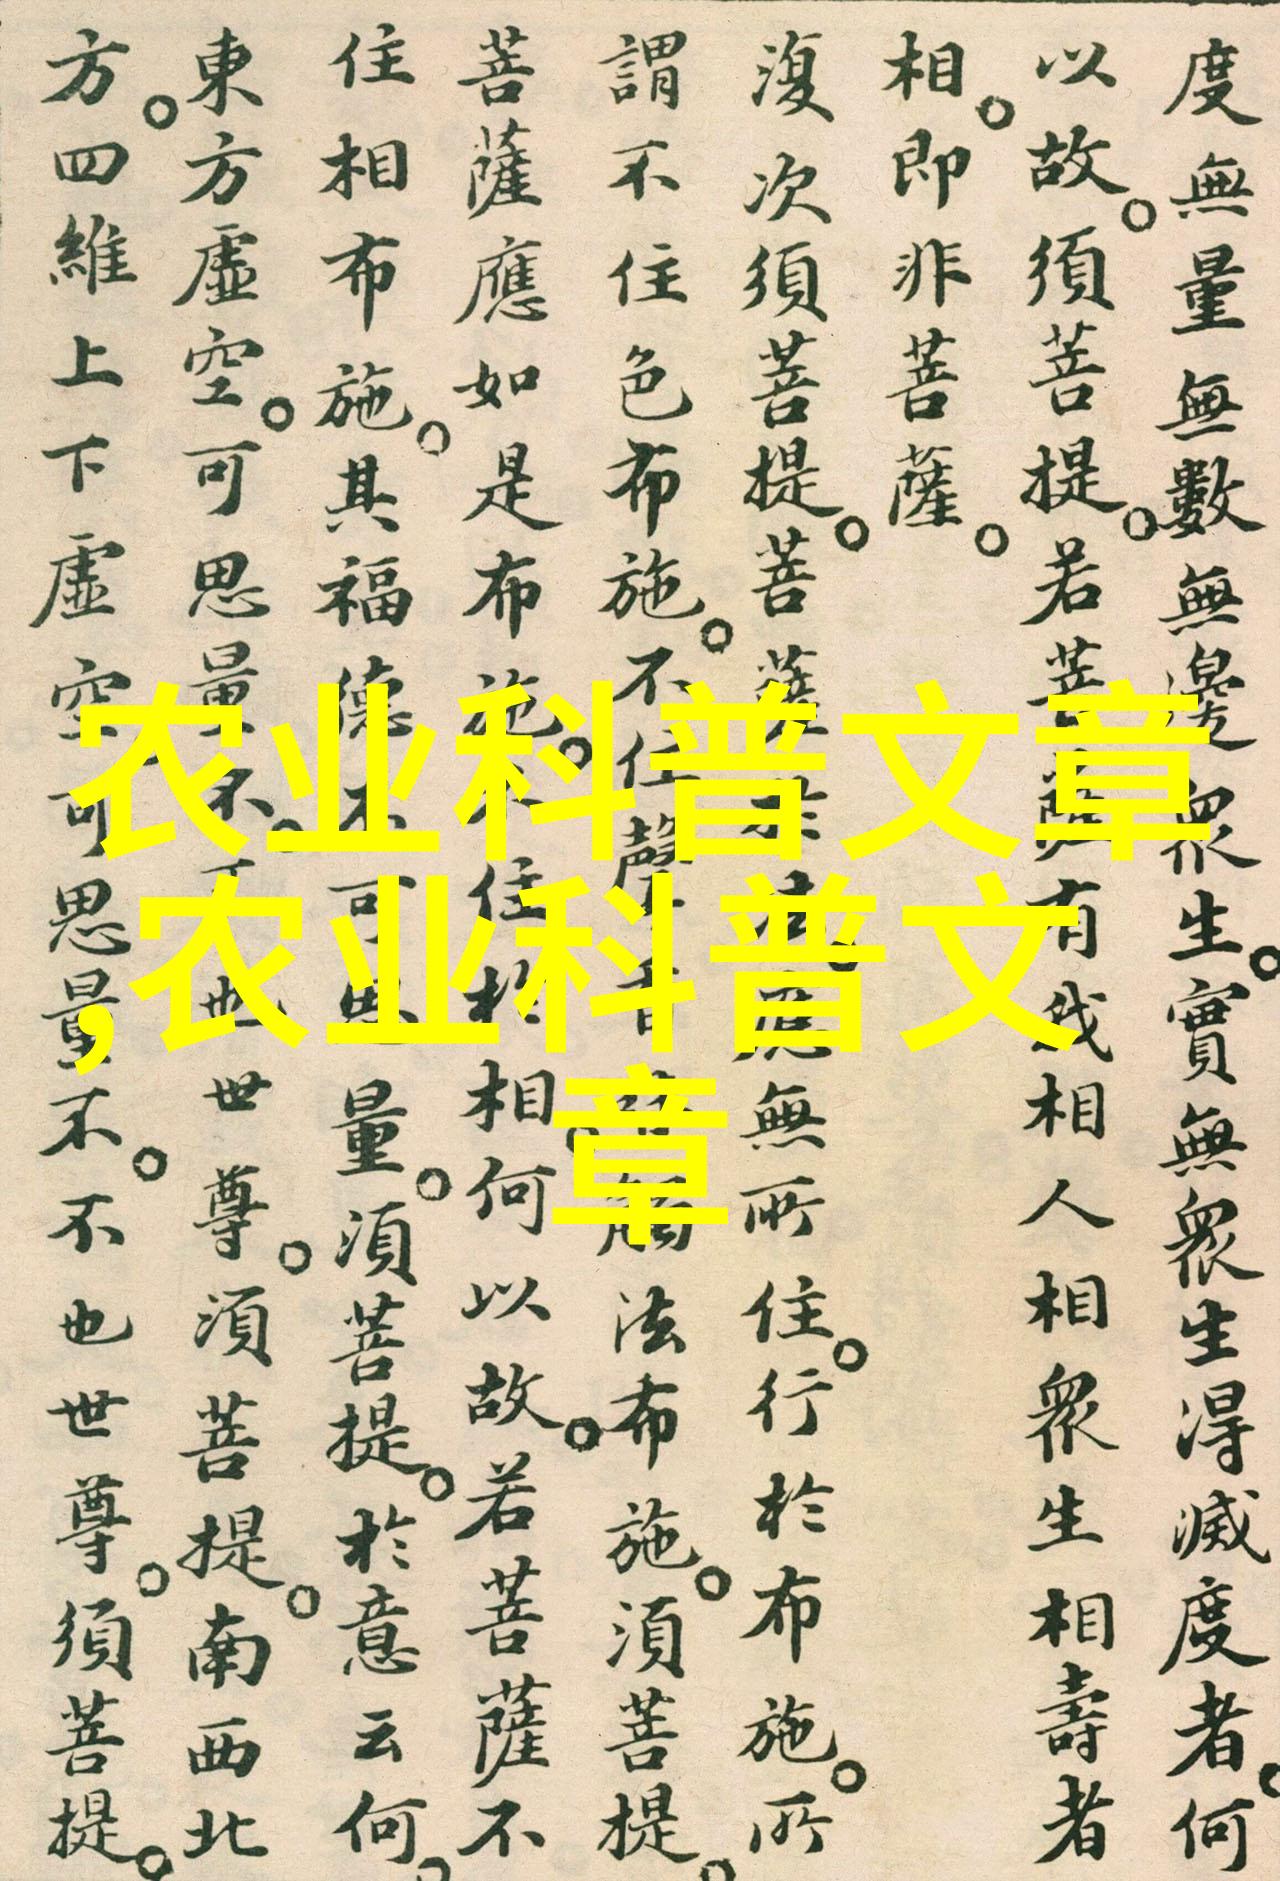 度無量無數無邊眾生。實無眾生得滅度者。何
以故。須菩提。若菩薩有我相人相眾生相壽者
相。即非菩薩。
復次須菩提。菩薩於法。應無所住。行於布施。所
謂不住色布施。不住聲香味觸法布施。須菩提。
菩薩應如是布施。不住於相。何以故。若菩薩不
住相布施。其福德不可思量。須菩提。於意云何。
東方虛空。可思量不。不也世尊。須菩提。南西北
方。四維上下虛空可思量不。不也世尊。須菩提。
农业科普文章
,农业科普文
章